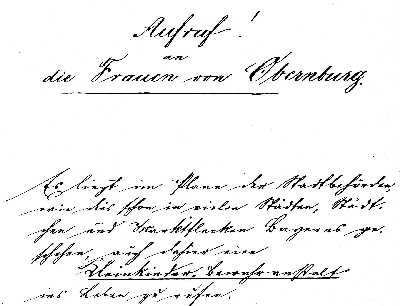 Aufruf!
an
die Frauen von Obernburg.
Es liegt im Plane der Stadtbehörden
wie dies schon in vielen Städten, Städt-
chen und Marktflecken Bayerns ge-
schehen, auch dahier eine
Kleinkinder-Bewahranstalt
ins Leben zu rufen.